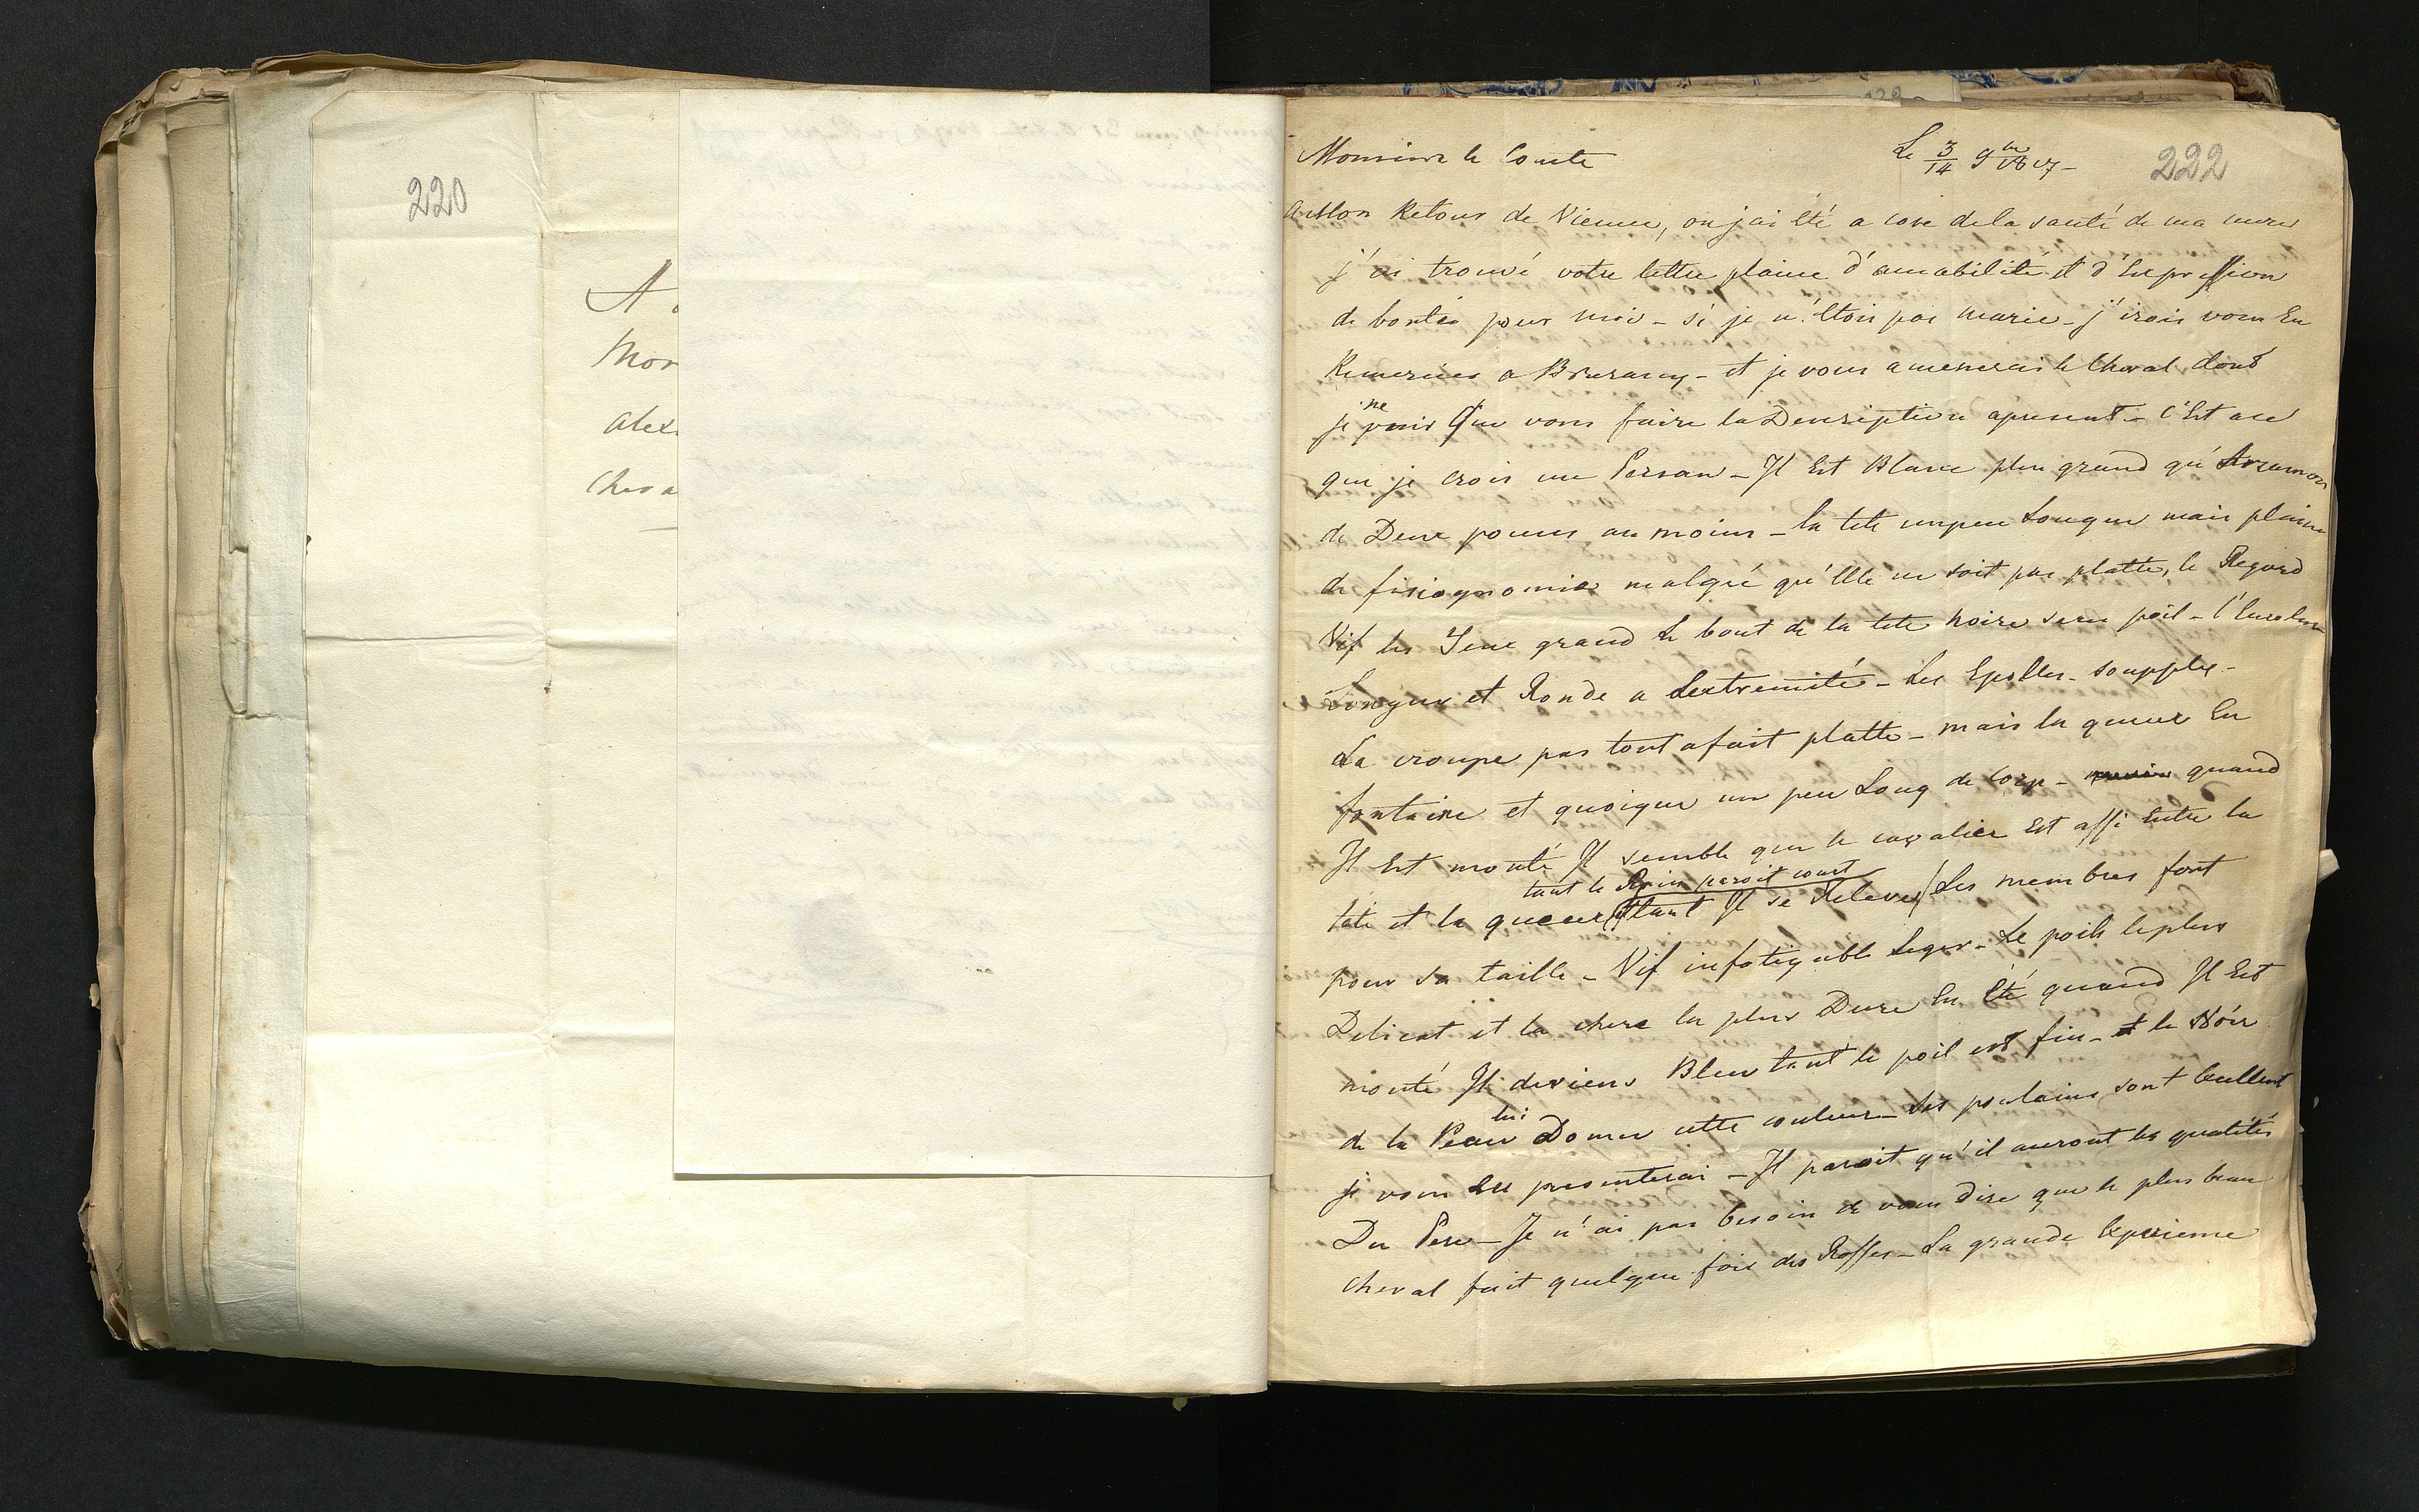 220
A
Mon
alex
Cheva
222
Monsieur le Comte Le 3/14 9bre 1817 -
Retour de Vienne, ou j'ai été a cose de la santé de ma mere
j'ai trouvé votre lettre plaine d'amabilité et d'Expression
de bontés pour moi - si je n'Etois pas marie - j'irois vous En
Remercier a - et je vous amenerais le Cheval dont
je ne puis Que vous faire la Descriptione apresent - C'Est ace
que je crois un Persan - Il Est Blanc plus grand qu'
de Deux pouces au moins - la tete unpeu Longue mais plaine
de fisiognomie malgré qu'Elle ne soit pas platte, le Regard
Vif les Yeux grand Le bout de la tete noire sans poil - l'Encolure
Longue et Ronde a Lextremité - Les Epolles - soupples -
La croupe pas tout afait platte - mais la queue En
fontaine et quoique un peu Long de Corp - quand
Il Est monté Il semble que le cavalier Est assi Entre la
tant le Rein paroit court
tete et la queue (tant Il se Releve) Les membres font
pour sa taille - Vif infatigable Leger - Le poils leplus
Delicat et la chere la plus Dure En Eté quand Il Est
monté Il deviens Bleu tant le poil est fin - et le Noir
de la Peau lui Donne cette couleur - Les poulains sont Excellent
je vous Les presenterai - Il paroit qu'il auront les qualités
Du Pere - Je n'ai pas besoin de vous dire que le plus beau
cheval fait quelque fois des Rosses - La grande Experience